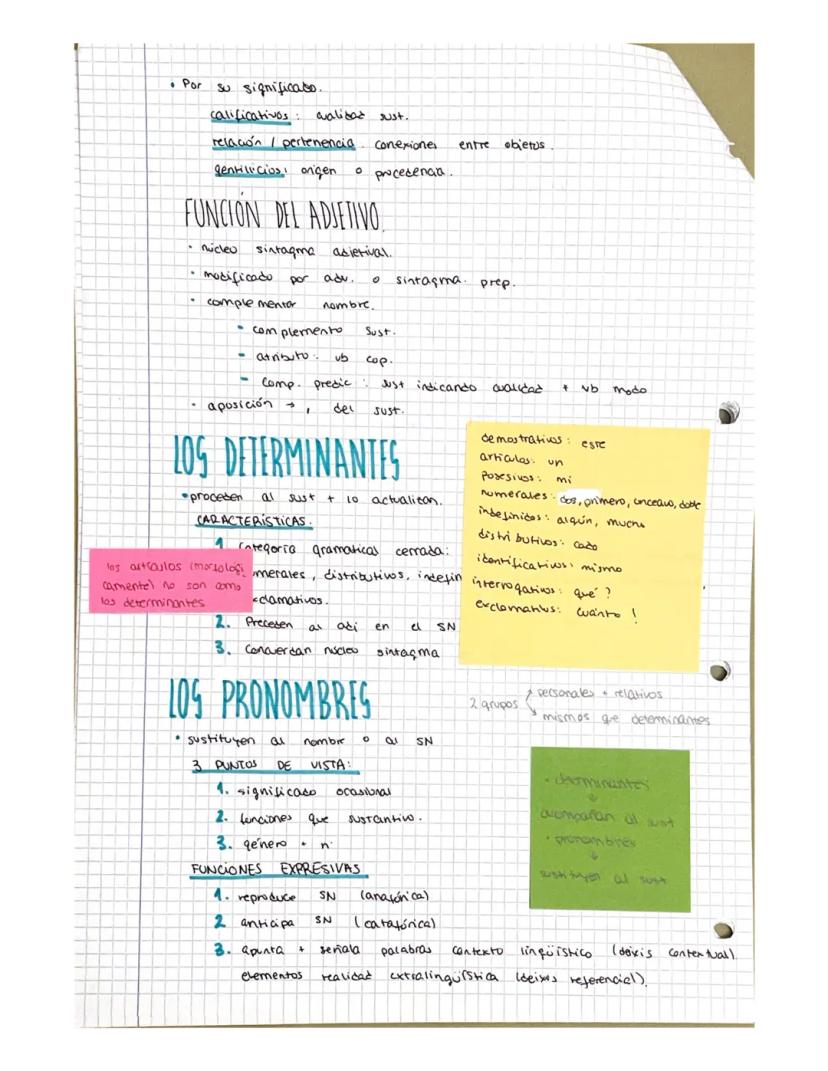 • Por su significado.
calificativos: cualidad sust.
relación / pertenencia. conexiones entre objetos.
gentilicios: origen o procedencia.
FUNCIÓN DEL ADJETIVO.
• núcleo sintagma adjetival.
• modificado por adv. o sintagma. prep.
• complementar nombre.
• complemento sust.
- atributo: vb cop.
- comp. predic: sust indicando cualidad + vb modo
• aposición → , del sust.
LOS DETERMINANTES
• proceden al sust + lo actualizan.
CARACTERÍSTICAS.
1. Categoría gramatical cerrada:
merales, distributivos, indefin
clamativos.
2. Preceden al adj en el SN
3. Concuerdan núcleo sintagma
los artículos (morfologi
camente) no son como
los determinantes
demostrativos: este
artículos: un
Posesivos: mi
numerales: dos, primero, onceavo, doble
indefinidos: algún, mucho
distributivos: cada
identificativos: mismo
interrogativos: qué?
exclamativos: cuánto!
LOS PRONOMBRES
2 grupos
personales + relativos
mismos que determinantes
• sustituyen al nombre o al SN
3 PUNTOS DE VISTA:
1. significado ocasional
2. funciones que sustantivo.
3. género + nº
• determinantes
↓
acompañan al sust
• pronombres
↓
sustituyen al sust
FUNCIONES EXPRESIVAS
1. reproduce SN (anafórica)
2 anticipa SN (catafórica)
3. apunta + señala palabras contexto lingüístico (deixis contextual)
elementos realidad extralingüística (deixis referencial).